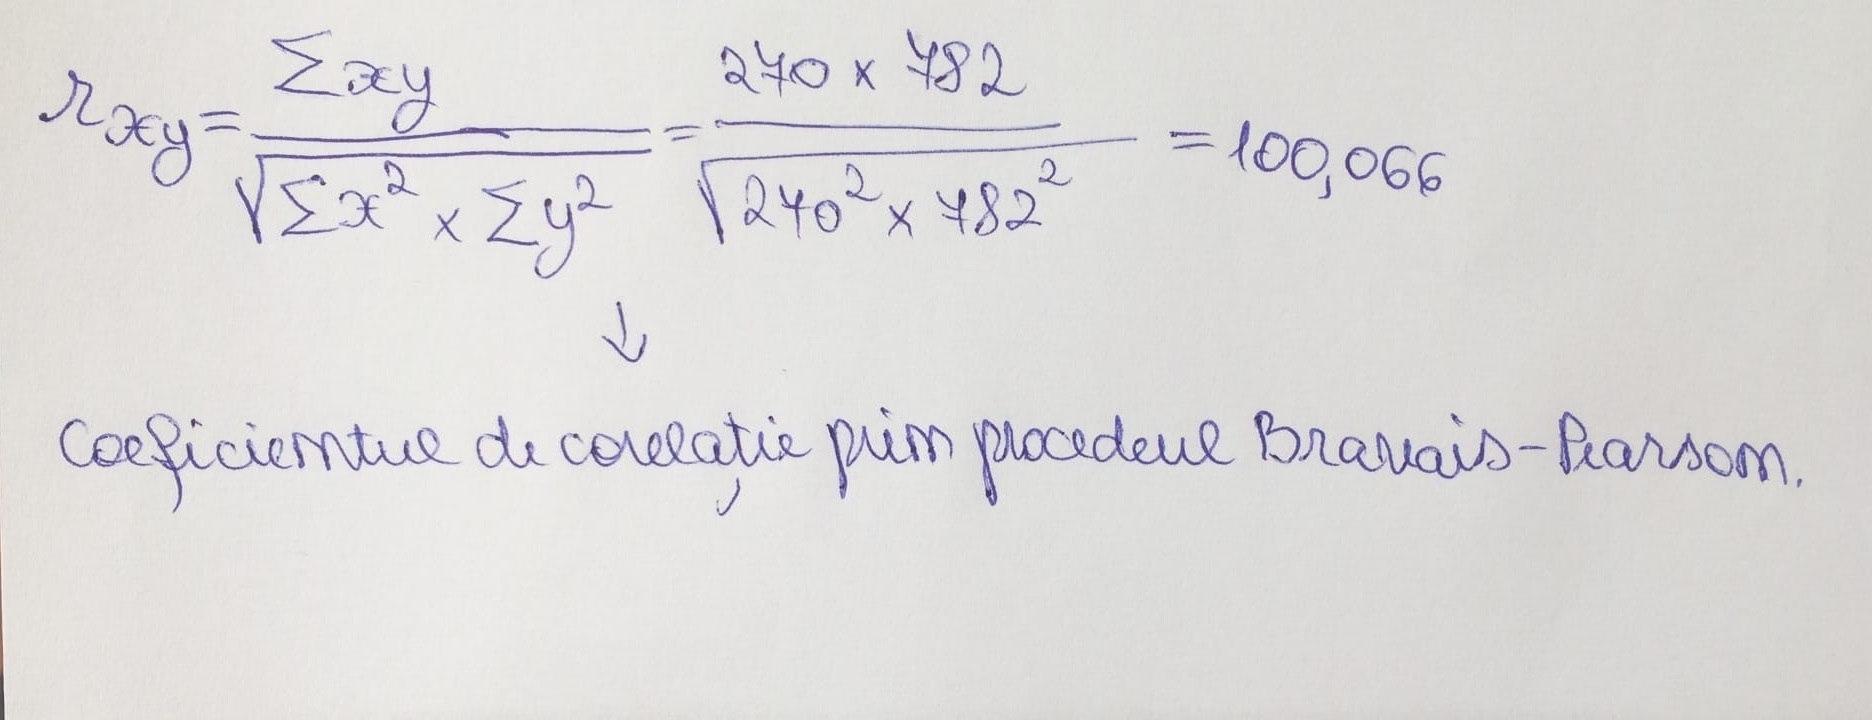 rxy = Σxy / √Σx² x Σy² = 270 x 782 / √270² x 782² = 100,066
↓
Coeficientul de corelație prin procedeul Bravais-Pearson.